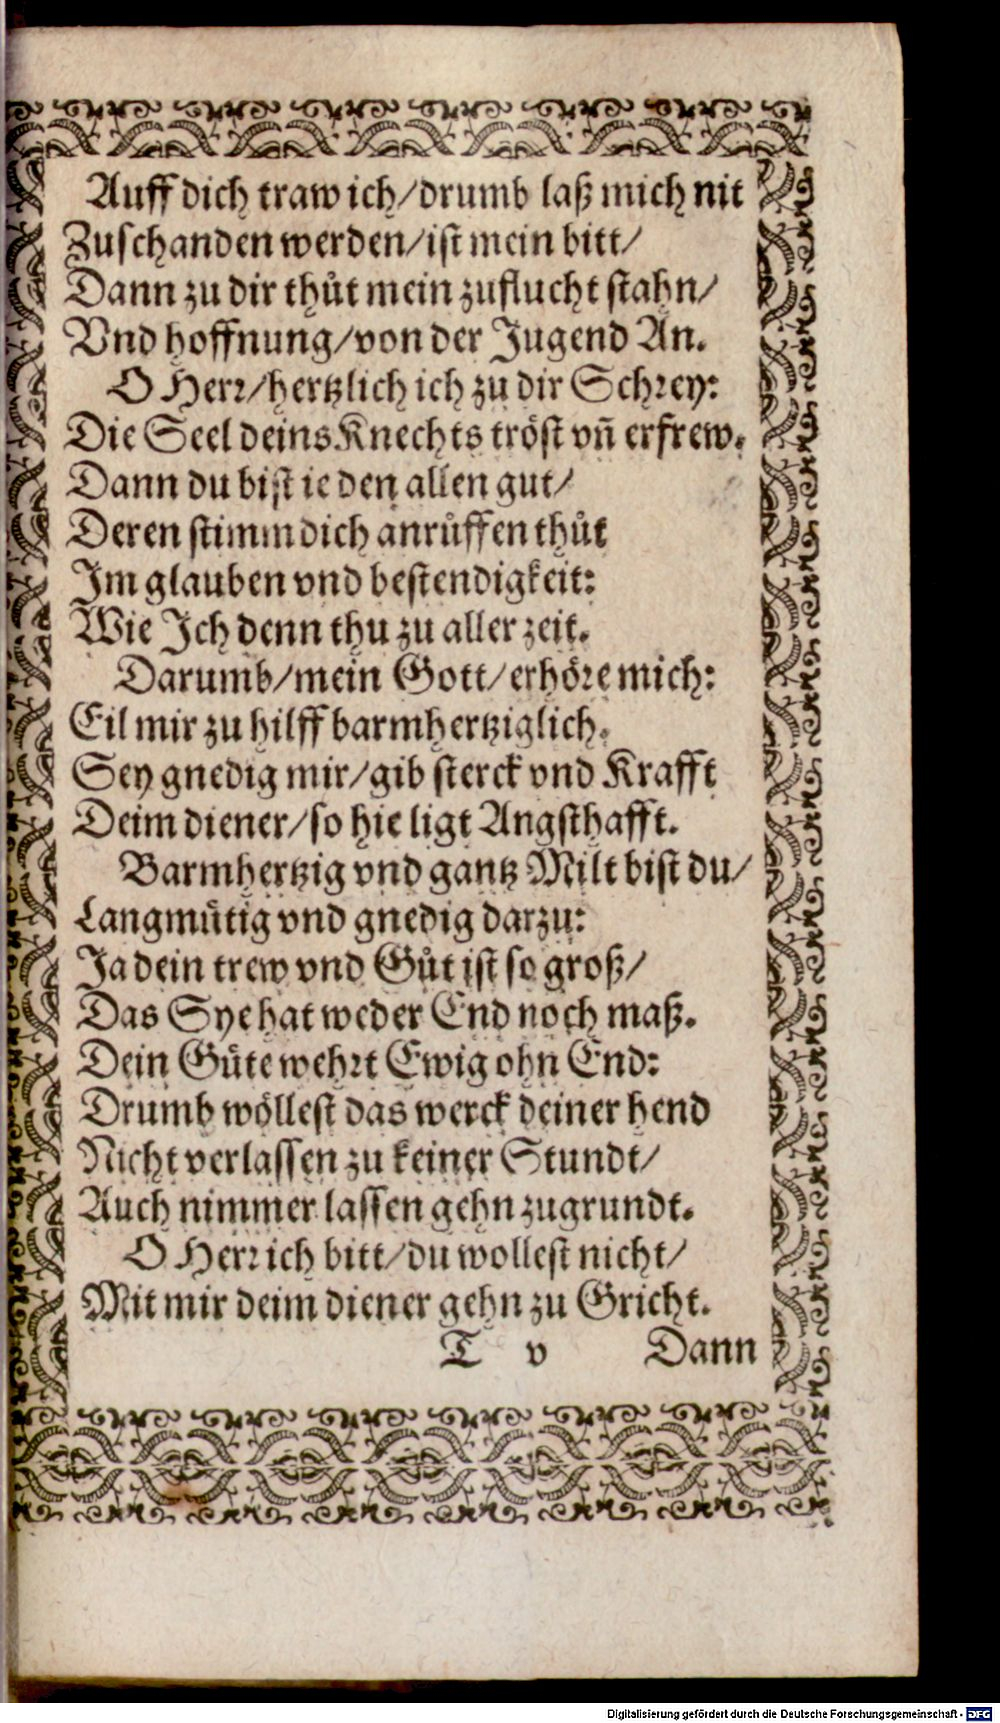 Auff dich traw ich/drumb laß mich nit
Zuschanden werden/ist mein bitt/
Dann zu dir thůt mein zuflucht stahn/
Vnd hoffnung/von der Jugend An.
O Herr/hertzlich ich zu dir Schrey:
Die Seel deins Knechts tröst vñ erfrew.
Dann du bist ie den allen gut/
Deren stimm dich anrůffen thůt
Im glauben vnd bestendigkeit:
Wie Ich denn thu zu aller zeit.
Darumb/mein Gott/erhöre mich:
Eil mir zu hilff barmhertziglich.
Sey gnedig mir/gib sterck vnd Krafft
Deim diener/so hie ligt Angsthafft.
Barmhertzig vnd gantz Milt bist du/
Langmütig vnd gnedig darzu:
Ja dein trew vnd Gůt ist so groß/
Das Sye hat weder End noch maß.
Dein Güte wehrt Ewig ohn End:
Drumb wöllest das werck deiner hend
Nicht verlassen zu keiner Stundt/
Auch nimmer lassen gehn zugrundt.
O Herr ich bitt/du wollest nicht/
Mit mir deim diener gehn zu Gricht.
T v Dann
Digitalisierung gefördert durch die Deutsche Forschungsgemeinschaft - DFG